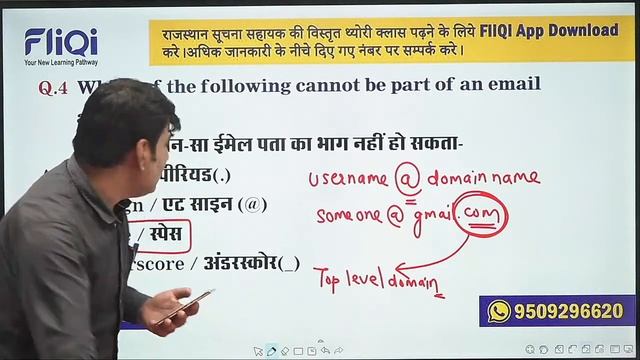 FliQi
Your New Learning Pathway
राजस्थान सूचना सहायक की विस्तृत थ्योरी क्लास पढ़ने के लिये FliQi App Download
करे।अधिक जानकारी के नीचे दिए गए नंबर पर सम्पर्क करे।
Q.4 of the following cannot be part of an email
ईमेल पता का भाग नहीं हो सकता-
पीरियड(.)
username @ domain name
/ एट साइन (@)
someone @ gmail.com
/ स्पेस
/ अंडरस्कोर(_)
Top level domain
9509296620